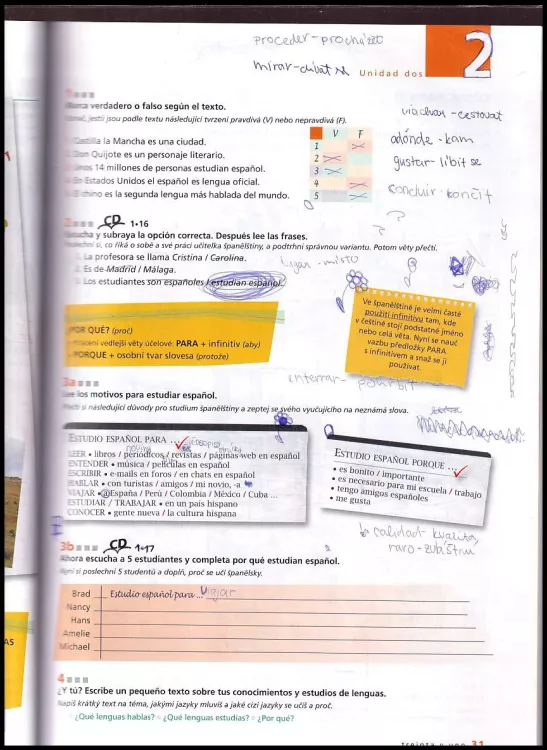 proceder - procházet
mirar - dívat
Unidad dos
2
viachar - cestovat
adónde - kam
gustar - líbit se
concluir - končit
?
?
verdadero o falso según el texto.
jestli jsou podle textu následující tvrzení pravdivá (V) nebo nepravdivá (F).
V F
1
2
3
4
5
la Mancha es una ciudad.
Quijote es un personaje literario.
14 millones de personas estudian español.
Estados Unidos el español es lengua oficial.
chino es la segunda lengua más hablada del mundo.
CD 1•16
y subraya la opción correcta. Después lee las frases.
si, co říká o sobě a své práci učitelka španělštiny, a podtrhni správnou variantu. Potom věty přečti.
La profesora se llama Cristina / Carolina.
Es de Madrid / Málaga.
Los estudiantes son españoles / estudian español.
lugar - místo
Ve španělštině je velmi časté
použití infinitivu tam, kde
v češtině stojí podstatné jméno
nebo celá věta. Nyní se nauč
vazbu předložky PARA
s infinitivem a snaž se ji
používat.
¿POR QUÉ? (proč)
vedlejší věty účelové: PARA + infinitiv (aby)
PORQUE + osobní tvar slovesa (protože)
3a
los motivos para estudiar español.
si následující důvody pro studium španělštiny a zeptej se svého vyučujícího na neznámá slova.
ESTUDIO ESPAÑOL PARA ...
LEER • libros / periódicos / revistas / páginas web en español
ENTENDER • música / películas en español
ESCRIBIR • e-mails en foros / en chats en español
HABLAR • con turistas / amigos / mi novio, -a
VIAJAR • a España / Perú / Colombia / México / Cuba ...
ESTUDIAR / TRABAJAR • en un país hispano
CONOCER • gente nueva / la cultura hispana
ESTUDIO ESPAÑOL PORQUE ...
• es bonito / importante
• es necesario para mi escuela / trabajo
• tengo amigos españoles
• me gusta
calidad - kvalita,
raro - zvláštní
3b CD 1•17
Ahora escucha a 5 estudiantes y completa por qué estudian español.
Nyní si poslechni 5 studentů a doplň, proč se učí španělsky.
Brad Estudio español para ... viajar
Nancy
Hans
Amelie
Michael
4
¿Y tú? Escribe un pequeño texto sobre tus conocimientos y estudios de lenguas.
Napiš krátký text na téma, jakými jazyky mluvíš a jaké cizí jazyky se učíš a proč.
¿Qué lenguas hablas? ¿Qué lenguas estudias? ¿Por qué?
treinta y uno 31
AS